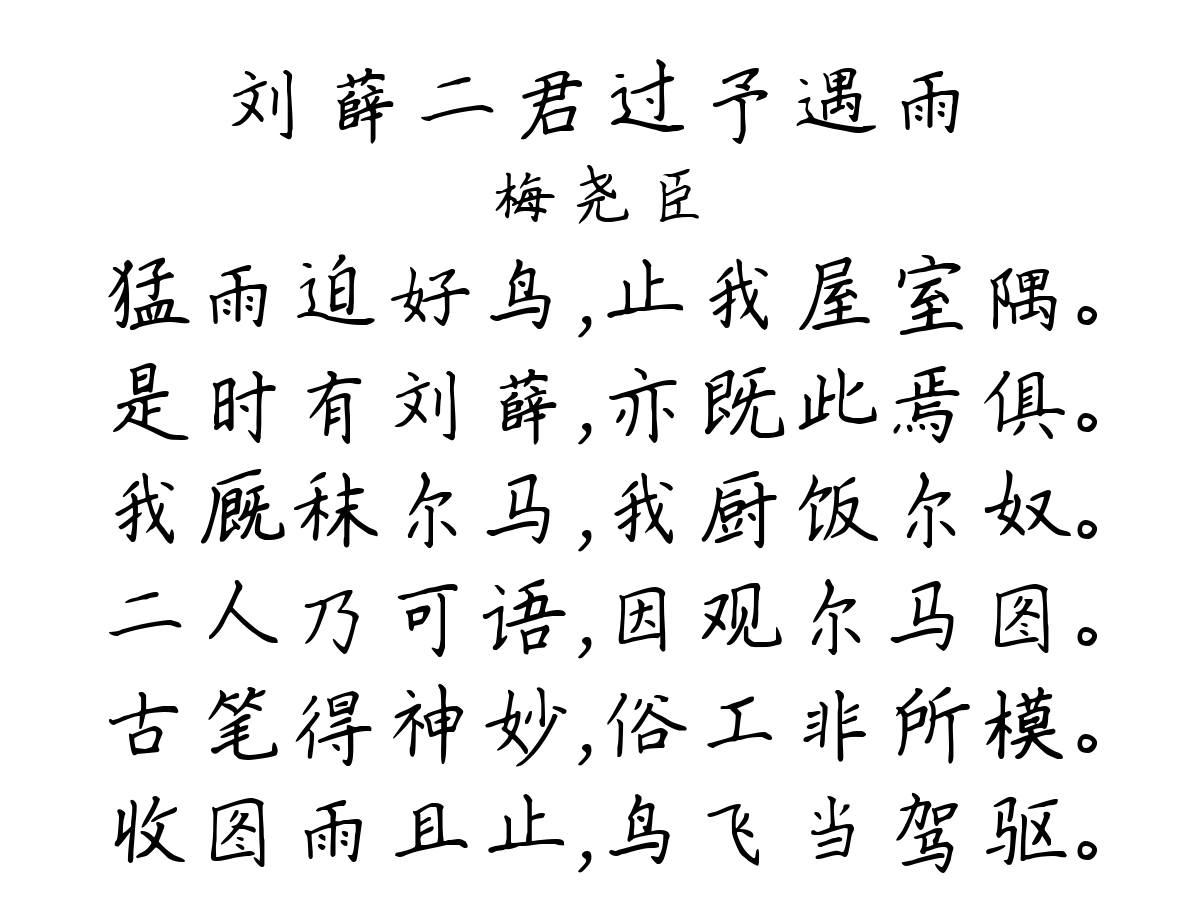 刘薛二君过予遇雨
梅尧臣
猛雨迫好鸟,止我屋室隅。
是时有刘薛,亦既此焉俱。
我厩秣尔马,我厨饭尔奴。
二人乃可语,因观尔马图。
古笔得神妙,俗工非所模。
收图雨且止,鸟飞当驾驱。